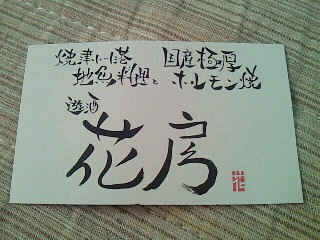 焼津小川港 国産極厚
地魚料理と ホルモン焼
遊酒
花房
花